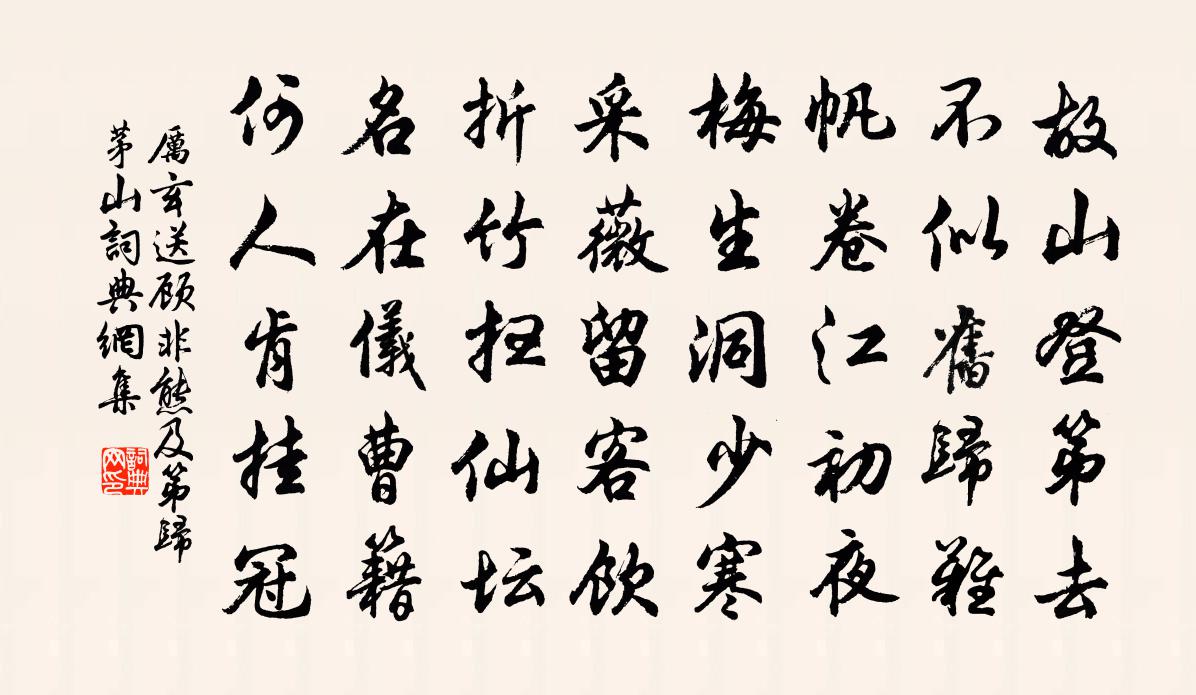 故山登第去
不似舊歸難
帆卷江初夜
梅生洞少寒
采薇留客飲
折竹掃仙坛
名在儀曹籍
何人肯挂冠
厲玄送顾非熊及第歸
茅山詞典網集
詞典网印